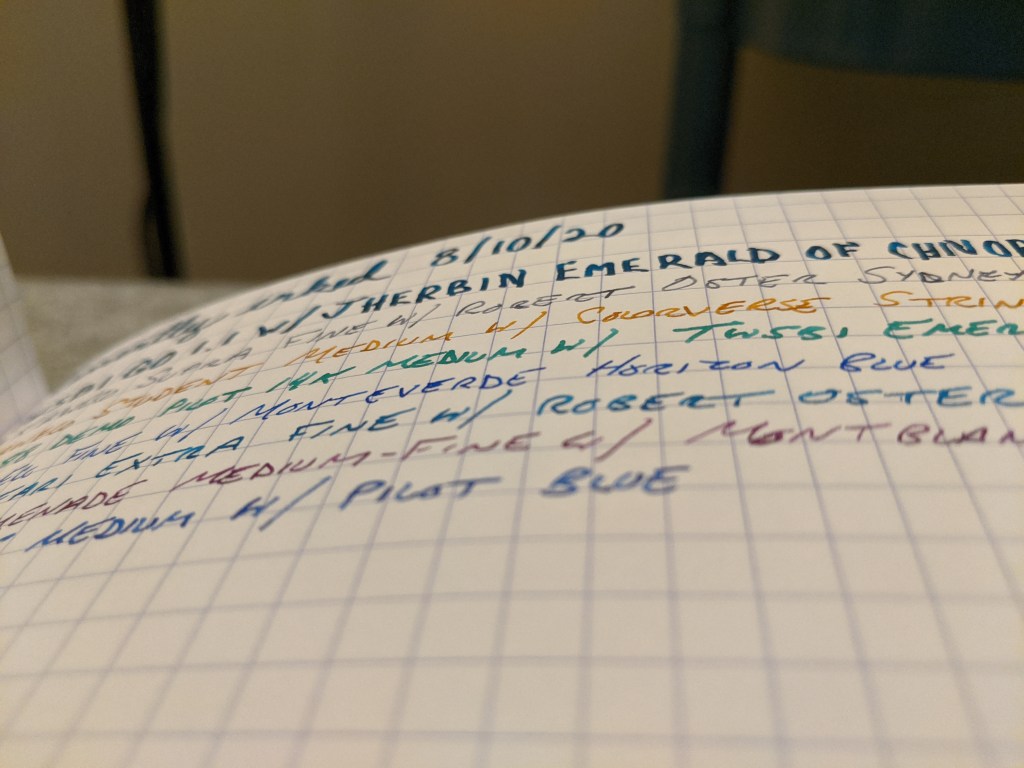 inked 8/10/20
1.1 w/ JHERBIN EMERALD OF CHIVOR
FINE W/ ROBERT OSTER SYDNEY
STUDENT MEDIUM W/ COLORVERSE STRIN
DEMO PILOT 14K MEDIUM W/ TWSBI EMER
FINE W/ MONTEVERDE HORIZON BLUE
EXTRA FINE W/ ROBERT OSTER
MEDIUM-FINE W/ MONTBLAN
MEDIUM W/ PILOT BLUE